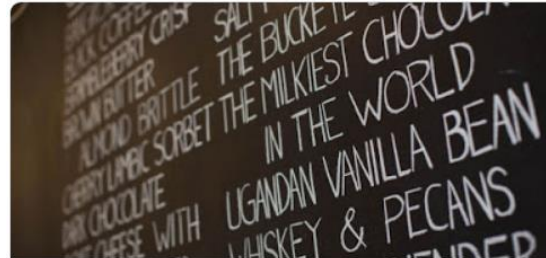 BLACK COFFEE
BRAMBLEBERRY CRISP
BROWN BUTTER
ALMOND BRITTLE
CHERRY LAMBIC SORBET
DARK CHOCOLATE
CHEESE WITH
SALTY
THE BUCKEYE STATE
THE MILKIEST CHOCOLATE
IN THE WORLD
UGANDAN VANILLA BEAN
WHISKEY & PECANS